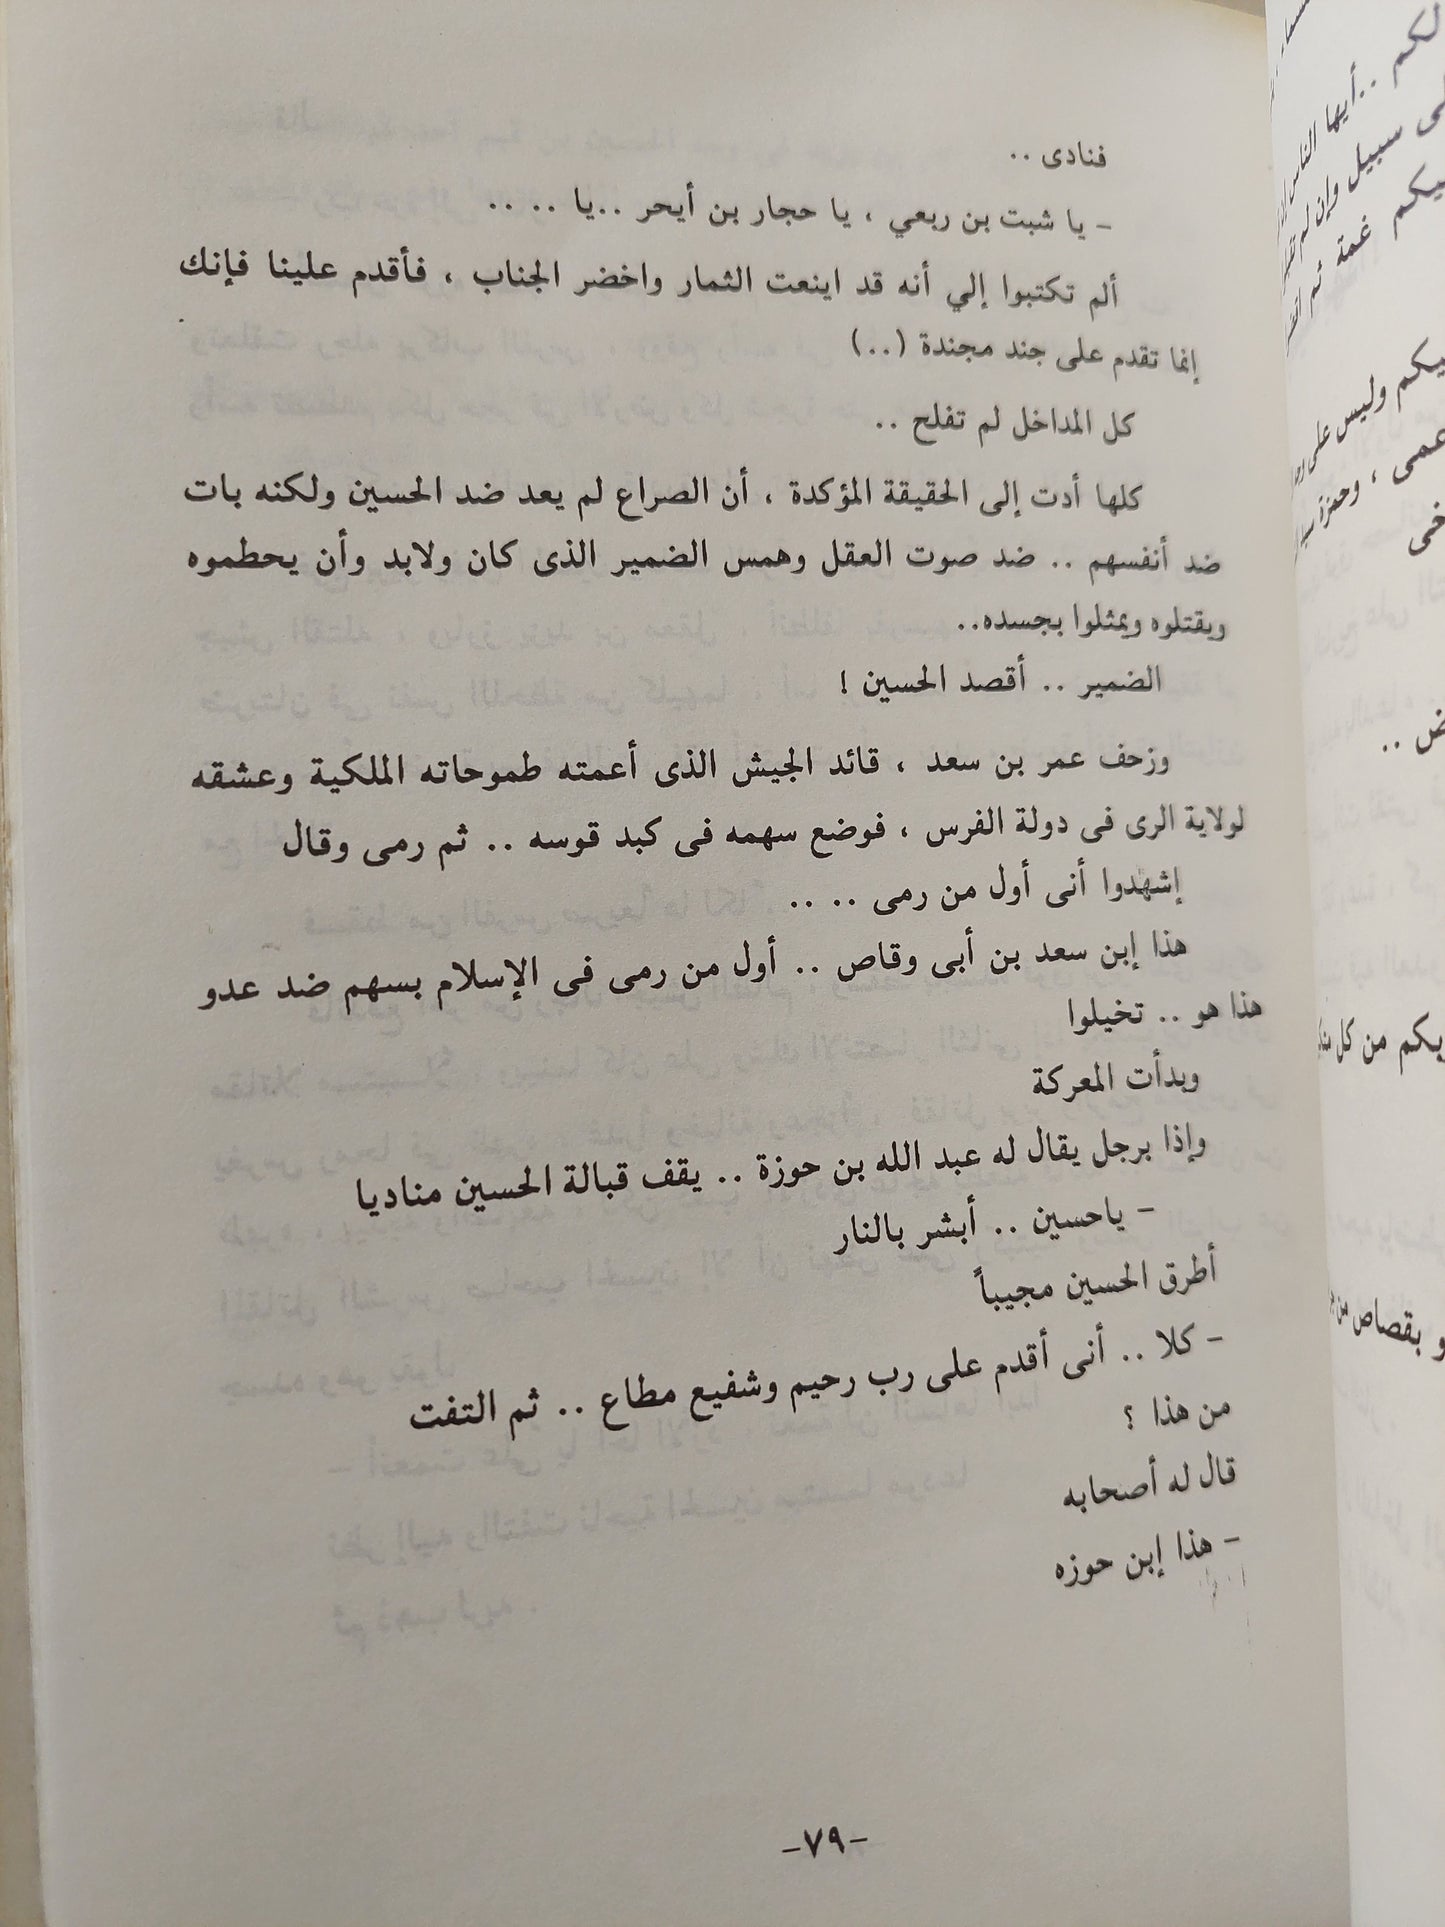 فنادى ..
- يا شبت بن ربعي ، يا حجار بن أيحر ..يا .. ..
ألم تكتبوا إلي أنه قد اينعت الثمار واخضر الجناب ، فأقدم علينا فإنك
إنما تقدم على جند مجندة (..)
كل المداخل لم تفلح ..
كلها أدت إلى الحقيقة المؤكدة ، أن الصراع لم يعد ضد الحسين ولكنه بات
ضد أنفسهم .. ضد صوت العقل وهمس الضمير الذى كان ولابد وأن يحطموه
ويقتلوه ويمثلوا بجسده..
الضمير .. أقصد الحسين !
وزحف عمر بن سعد ، قائد الجيش الذى أعمته طموحاته الملكية وعشقه
لولاية الرى فى دولة الفرس ، فوضع سهمه فى كبد قوسه .. ثم رمى وقال
إشهدوا أنى أول من رمى .. ..
هذا إبن سعد بن أبى وقاص .. أول من رمى فى الإسلام بسهم ضد عدو
هذا هو .. تخيلوا
وبدأت المعركة
وإذا برجل يقال له عبد الله بن حوزة .. يقف قبالة الحسين مناديا
- ياحسين .. أبشر بالنار
أطرق الحسين مجيباً
- كلا .. أنى أقدم على رب رحيم وشفيع مطاع .. ثم التفت
من هذا ؟
قال له أصحابه
- هذا إبن حوزه
-٧٩-
لكم ..أيها الناس
سبيل وإن لم
غمة ثم
وليس على
عمى ، وحمزة
ض ..
يكم من كل
و بقصاص من